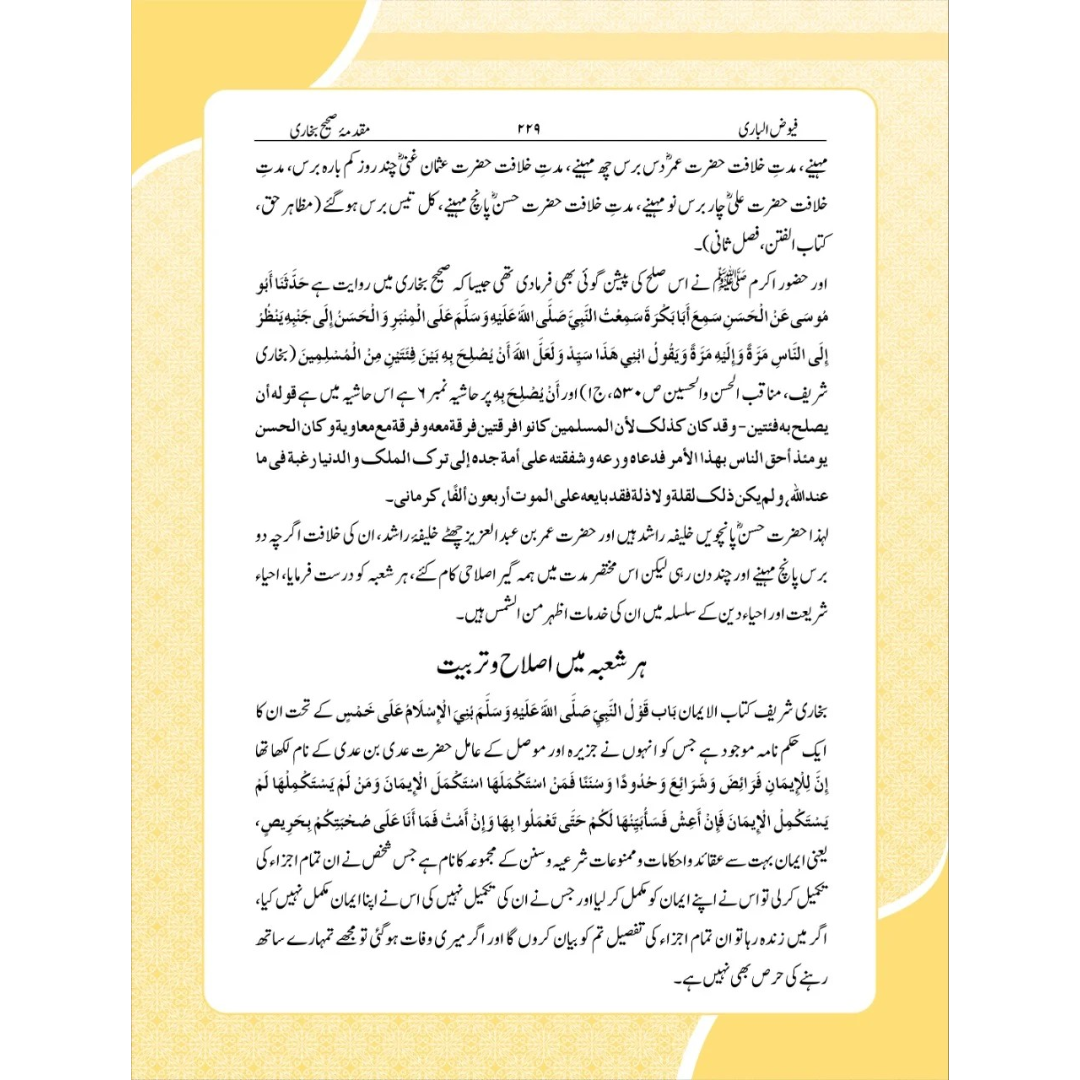 فیوض الباری ۲۲۹ مقدمۂ صحیح بخاری
مہینے، مدتِ خلافت حضرت عمرؓ دس برس چھ مہینے، مدتِ خلافت حضرت عثمان غنیؓ چند روز کم بارہ برس، مدتِ
خلافت حضرت علیؓ چار برس نو مہینے، مدتِ خلافت حضرت حسنؓ پانچ مہینے، کل تیس برس ہوگئے (مظاہر حق،
کتاب الفتن، فصل ثانی)۔
اور حضور اکرم ﷺ نے اس صلح کی پیشن گوئی بھی فرمادی تھی جیسا کہ صحیح بخاری میں روایت ہے حَدَّثَنَا أَبُو
مُوسَى عَنْ الْحَسَنِ سَمِعَ أَبَا بَكْرَةَ سَمِعْتُ النَّبِيَّ صَلَّى اللهُ عَلَيْهِ وَسَلَّمَ عَلَى الْمِنْبَرِ وَالْحَسَنُ إِلَى جَنْبِهِ يَنْظُرُ
إِلَى النَّاسِ مَرَّةً وَإِلَيْهِ مَرَّةً وَيَقُولُ ابْنِي هَذَا سَيِّدٌ وَلَعَلَّ اللهَ أَنْ يُصْلِحَ بِهِ بَيْنَ فِئَتَيْنِ مِنْ الْمُسْلِمِينَ (بخاری
شریف، مناقب الحسن والحسین ص۵۳۰، ج۱) اور أَنْ يُصْلِحَ بِهِ پر حاشیہ نمبر ۶ ہے اس حاشیہ میں ہے قوله أن
يصلح به فئتين- وقد كان كذلك لأن المسلمين كانوا فرقتين فرقة معه وفرقة مع معاوية وكان الحسن
يومئذ أحق الناس بهذا الأمر فدعاه ورعه وشفقته على أمة جده إلى ترك الملك والدنيا رغبة في ما
عند الله، ولم يكن ذلك لقلة ولا ذلة فقد بايعه على الموت أربعون ألفًا، كرماني۔
لہذا حضرت حسنؓ پانچویں خلیفہ راشد ہیں اور حضرت عمر بن عبد العزیز چھٹے خلیفۂ راشد، ان کی خلافت اگرچہ دو
برس پانچ مہینے اور چند دن رہی لیکن اس مختصر مدت میں ہمہ گیر اصلاحی کام کئے، ہر شعبہ کو درست فرمایا، احیاء
شریعت اور احیاء دین کے سلسلہ میں ان کی خدمات اظہر من الشمس ہیں۔
ہر شعبہ میں اصلاح و تربیت
بخاری شریف کتاب الایمان بَاب قَوْلُ النَّبِيِّ صَلَّى اللهُ عَلَيْهِ وَسَلَّمَ بُنِيَ الْإِسْلَامُ عَلَى خَمْسٍ کے تحت ان کا
ایک حکم نامہ موجود ہے جس کو انہوں نے جزیرہ اور موصل کے عامل حضرت عدی بن عدی کے نام لکھا تھا
إِنَّ لِلْإِيمَانِ فَرَائِضَ وَشَرَائِعَ وَحُدُودًا وَسُنَنًا فَمَنْ اسْتَكْمَلَهَا اسْتَكْمَلَ الْإِيمَانَ وَمَنْ لَمْ يَسْتَكْمِلْهَا لَمْ
يَسْتَكْمِلْ الْإِيمَانَ فَإِنْ أَعِشْ فَسَأُبَيِّنُهَا لَكُمْ حَتَّى تَعْمَلُوا بِهَا وَإِنْ أَمُتْ فَمَا أَنَا عَلَى صُحْبَتِكُمْ بِحَرِيصٍ،
یعنی ایمان بہت سے عقائد و احکامات و ممنوعات شرعیہ و سنن کے مجموعہ کا نام ہے جس شخص نے ان تمام اجزاء کی
تکمیل کر لی تو اس نے اپنے ایمان کو مکمل کر لیا اور جس نے ان کی تکمیل نہیں کی اس نے اپنا ایمان مکمل نہیں کیا،
اگر میں زندہ رہا تو ان تمام اجزاء کی تفصیل تم کو بیان کروں گا اور اگر میری وفات ہوگئی تو مجھے تمہارے ساتھ
رہنے کی حرص بھی نہیں ہے۔